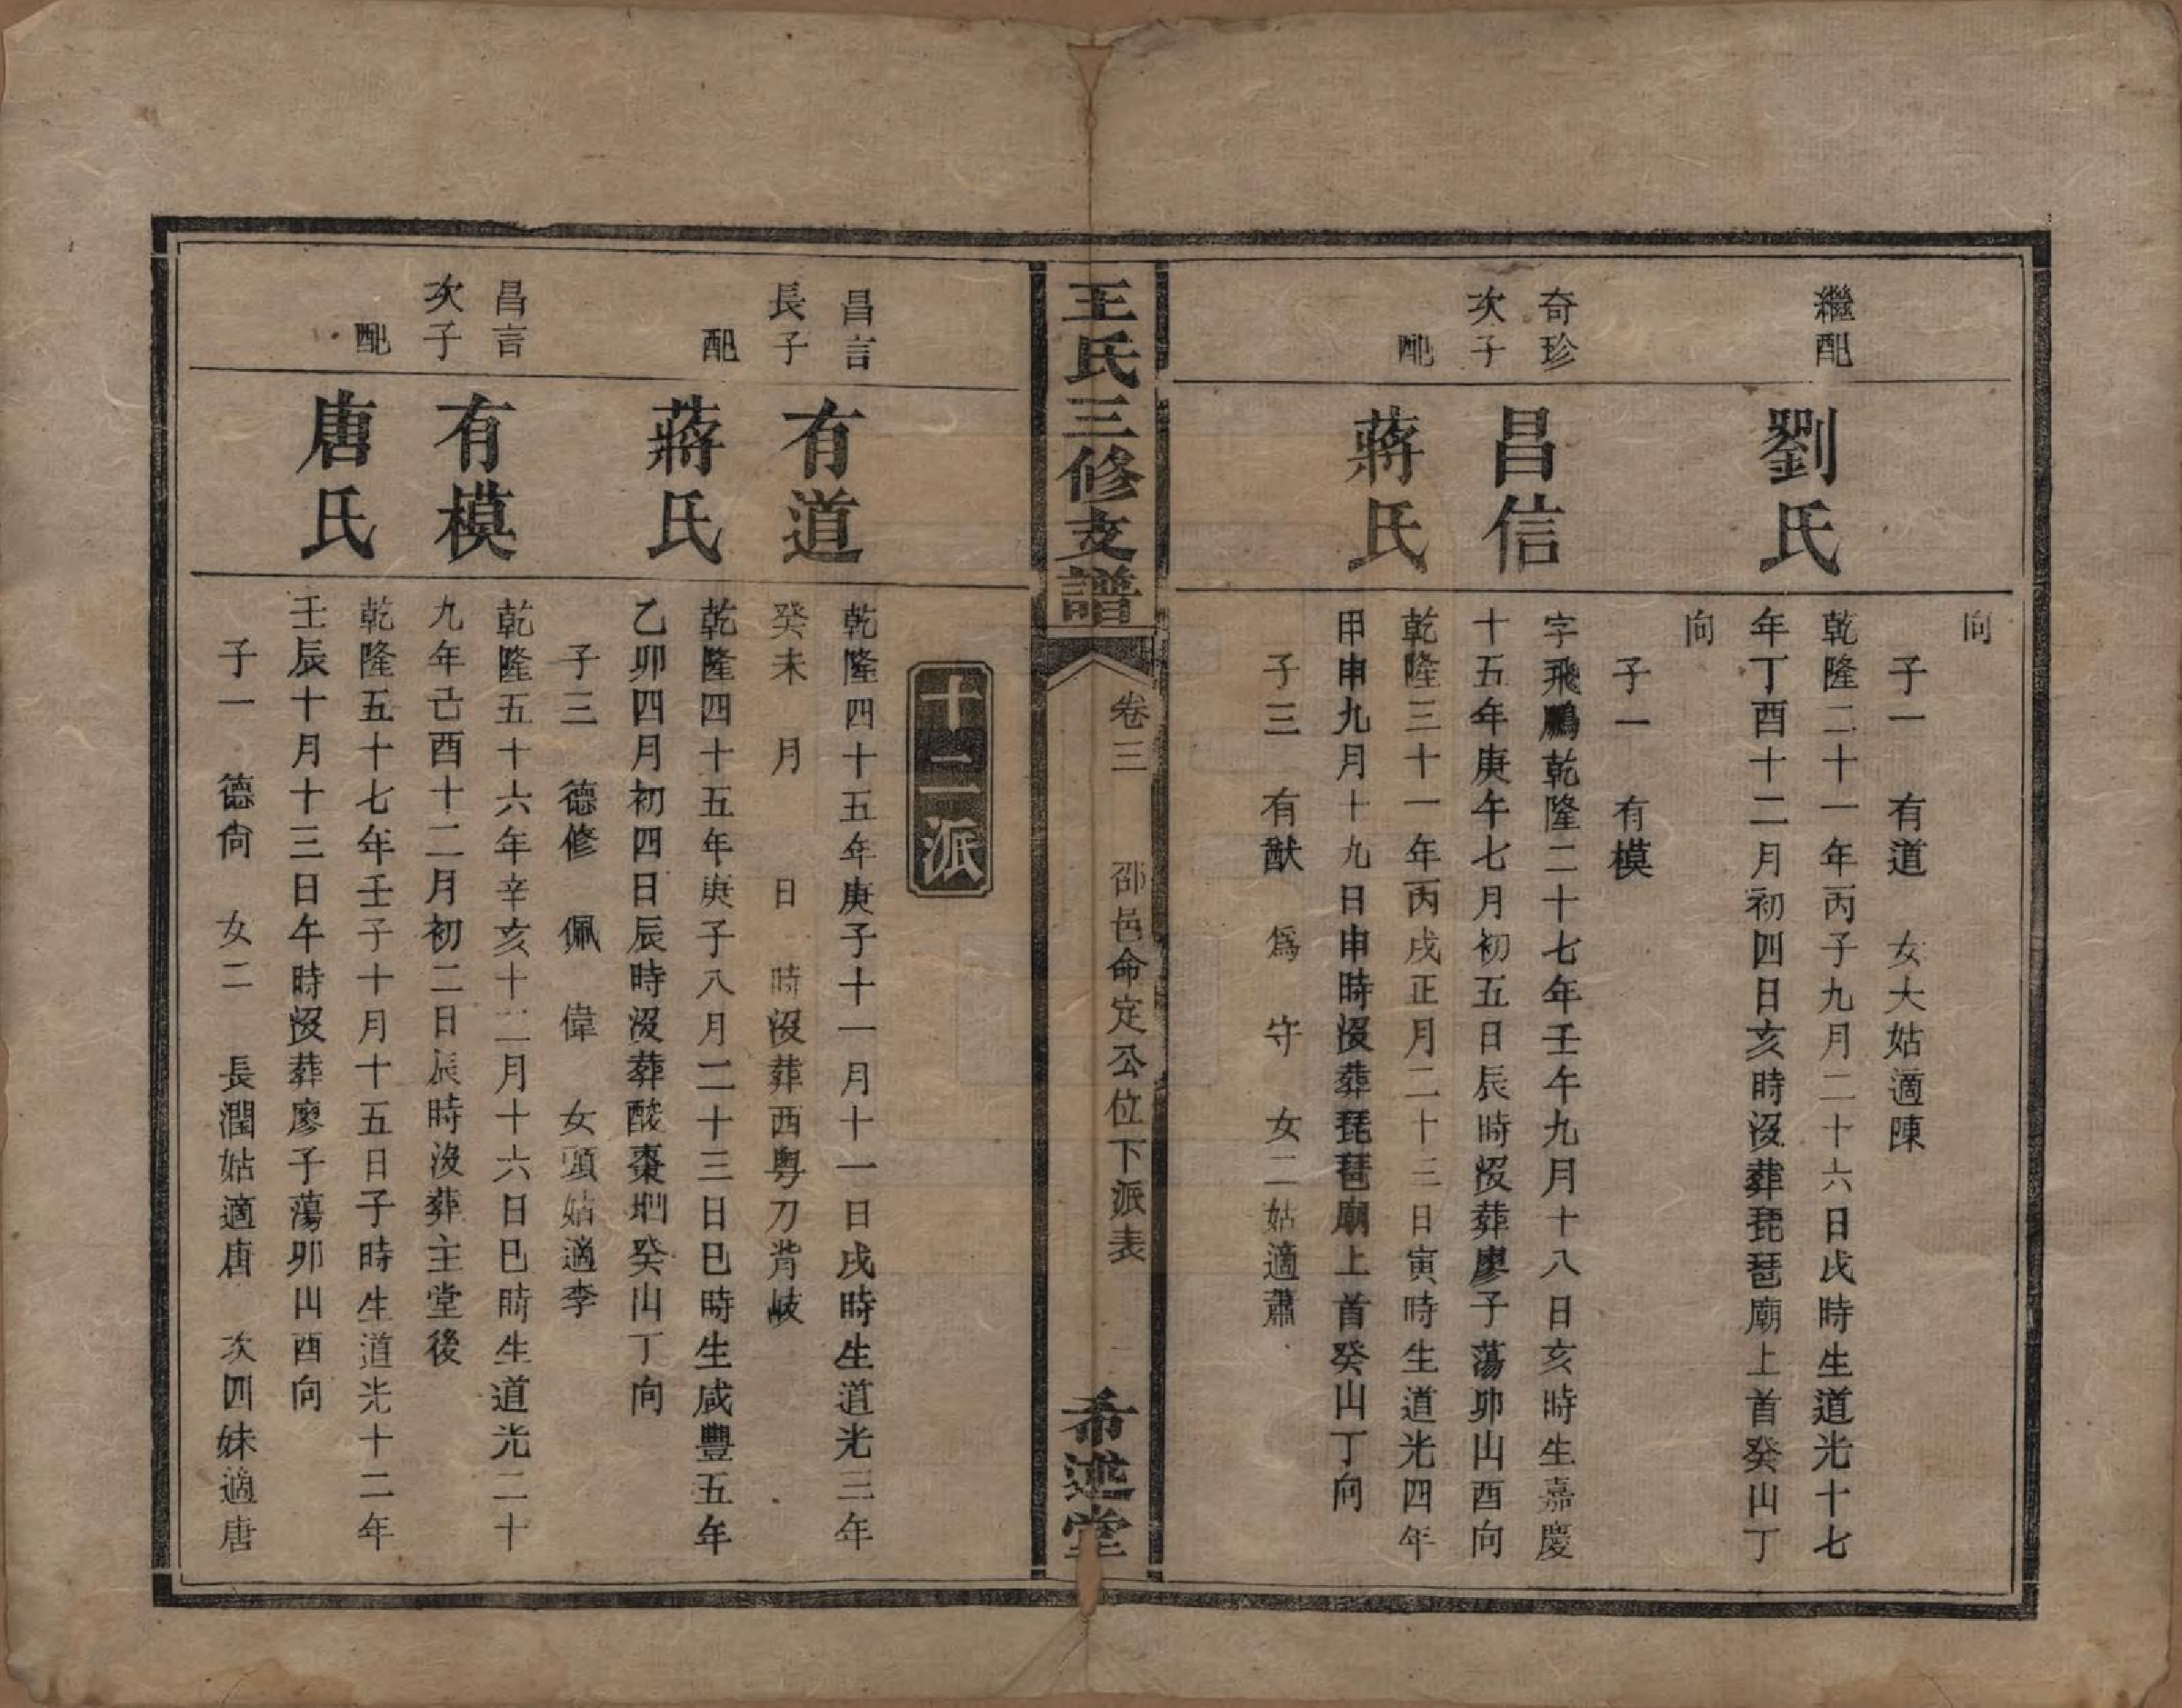 向
子一 有道 女大姑適陳
繼配
劉氏
乾隆二十一年丙子九月二十六日戌時生道光十七
年丁酉十二月初四日亥時沒葬琵琶廟上首癸山丁
向
子一 有模
奇珍
次子
昌信
字飛鵬乾隆二十七年壬午九月十八日亥時生嘉慶
十五年庚午七月初五日辰時沒葬廖子蕩卯山酉向
配
蔣氏
乾隆三十一年丙戌正月二十三日寅時生道光四年
甲申九月十九日申時沒葬琵琶廟上首癸山丁向
子三 有猷 為 守 女二姑適蕭
王氏三修支譜
卷三
邵邑命定公位下派表
希述堂
十二派
昌言
長子
有道
乾隆四十五年庚子十一月十一日戌時生道光三年
癸未 月 日 時沒葬西粵刀背岐
配
蔣氏
乾隆四十五年庚子八月二十三日巳時生咸豐五年
乙卯四月初四日辰時沒葬酸棗坳癸山丁向
子三 德修 佩 偉 女頭姑適李
昌言
次子
有模
乾隆五十六年辛亥十二月十六日巳時生道光二十
九年己酉十二月初二日辰時沒葬主堂後
配
唐氏
乾隆五十七年壬子十月十五日子時生道光十二年
壬辰十月十三日午時沒葬廖子蕩卯山酉向
子一 德尙 女二 長潤姑適唐 次四妹適唐